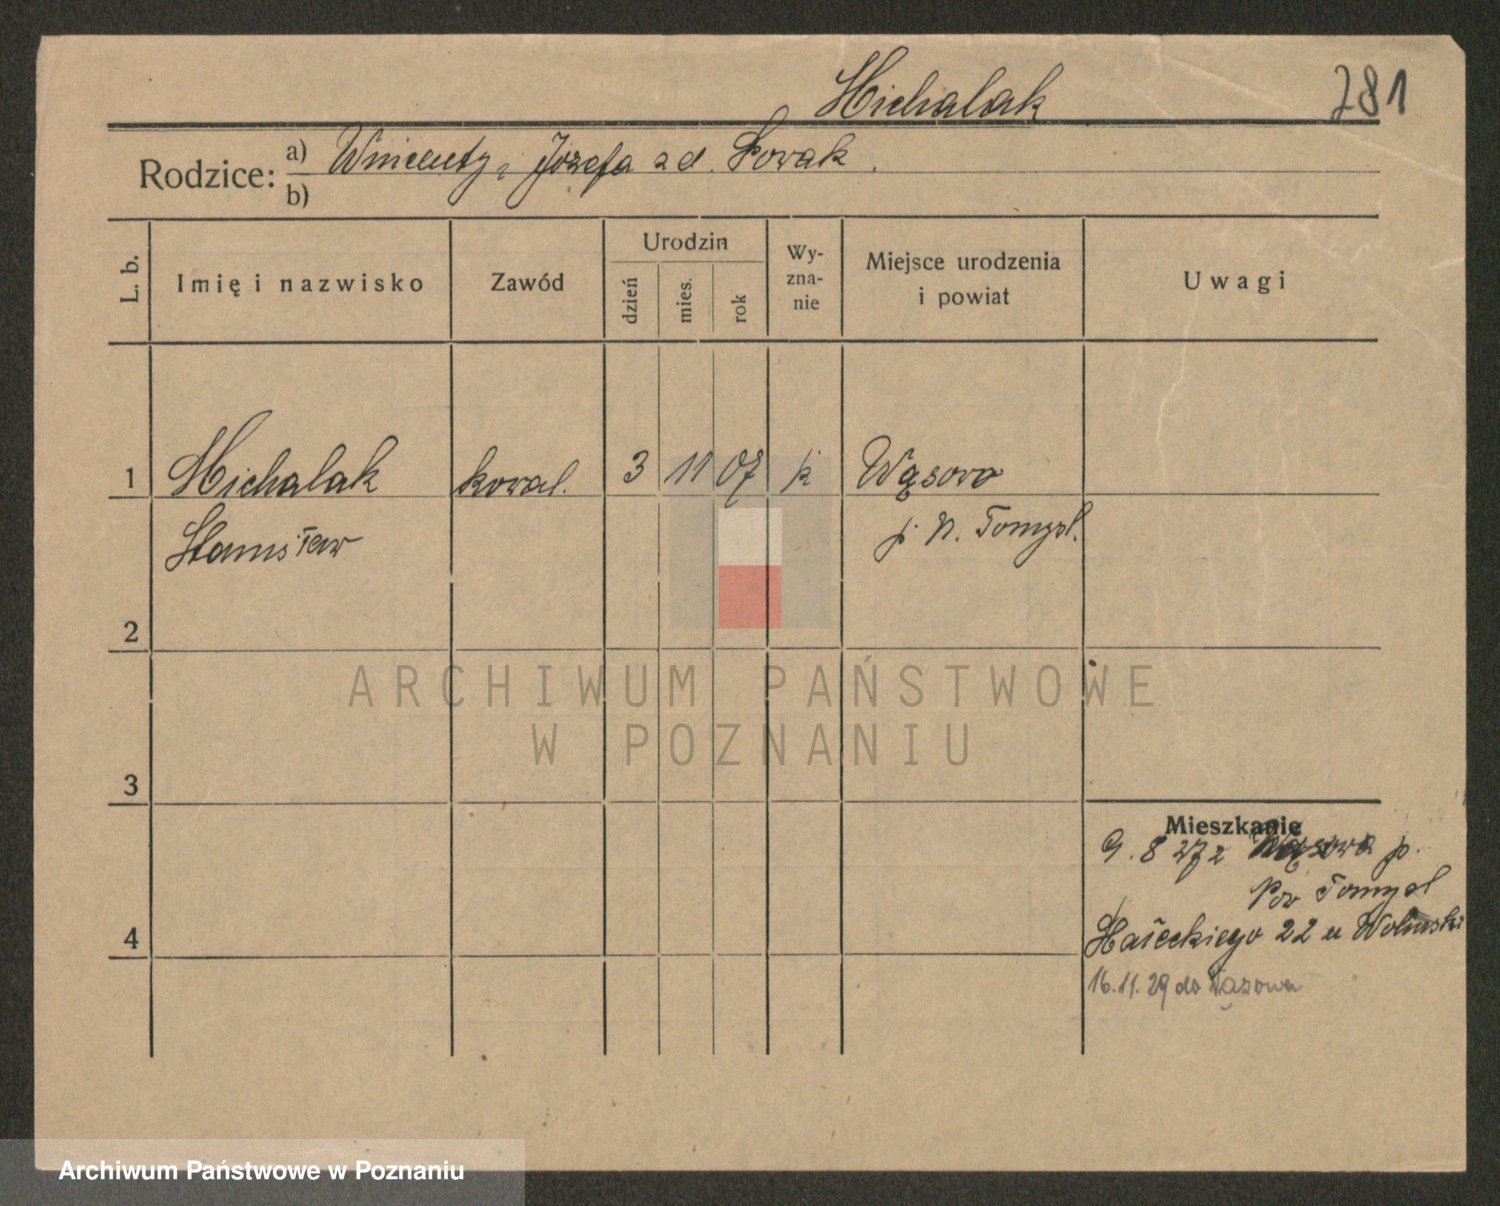 Michalak
781
Rodzice: a) Wincenty, Józefa zd. Nowak.
b)
L. b.
Imię i nazwisko
Zawód
Urodzin
dzień
mies.
rok
Wy-
zna-
nie
Miejsce urodzenia
i powiat
Uwagi
1 Michalak kowal. 3 11 07 k Wąsowo
Stanisław p. N. Tomyśl.
2
3
4
Mieszkanie
9. 8 272 Wąsowa p.
Now Tomysl
Małeckiego 22 u Wolinski
16.11.29 do Wąsowa
ARCHIWUM PAŃSTWOWE
W POZNANIU
Archiwum Państwowe w Poznaniu